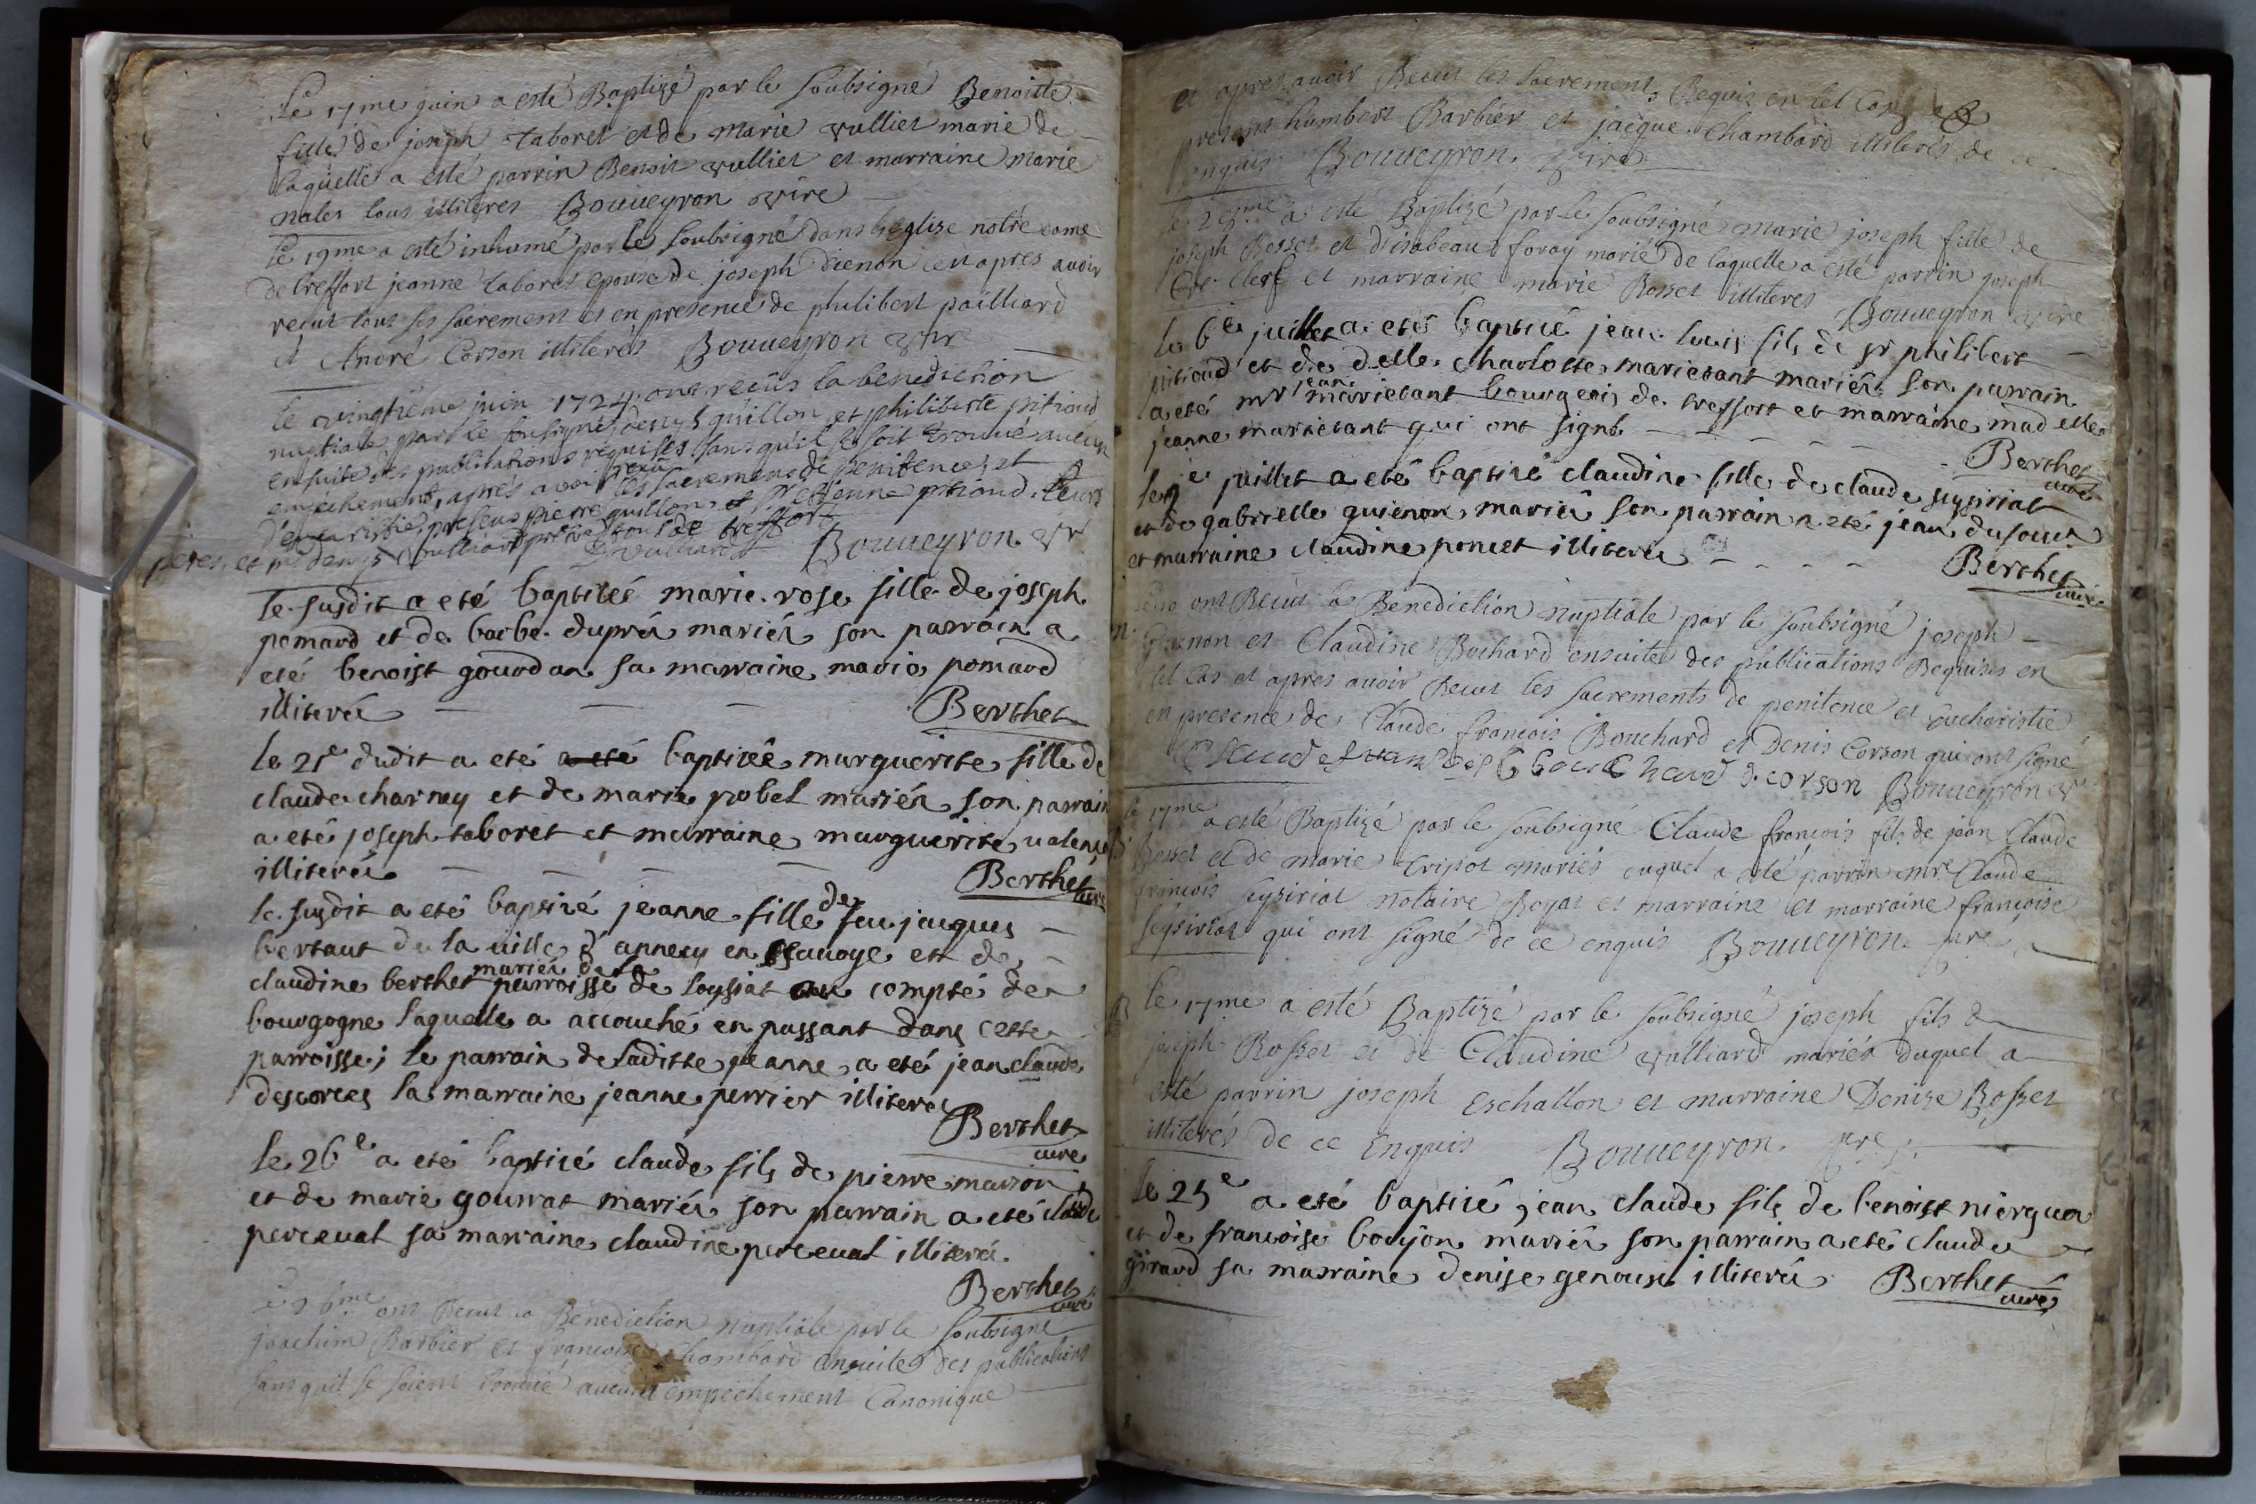 Le 17me juin a esté Baptizé par le soubsigné Benoitte
fille de joseph taboret et de Marie vulliet marié de
laquelle a esté parrin Benoit vulliet et marraine marie
nalet tous illiteres Bouueyron vire
Le 19me a esté inhumé par le soubsigné dans l'eglize notre dame
de treffort jeanne taboret epouse de joseph et apres auoir
recut tous ses sacrement et en presence de philibert pailliard
et André Corson illiterés Bouueyron vire
le vingtiéme juin 1724 ont reçûs la benediction
nuptiale par le sousigné denys guillon et philiberte pitiond
ensuite des publications requises sans qu'il se soit trouué aucun
empéchement, aprés avoir reçû les sacremens de penitence, et
d'eucaristie, presens pierre guillon et sr etienne pitiond leurs
peres, et mre denys prétre tous de treffort
Bouueyron vr
le susdit a eté baptisée marie rose fille de joseph
pomard et de barbe dupré mariés son parrain a
eté benoist gourdan sa marraine marie pomard
illiterés Berthet
le 21e dudit a eté a eté baptisée marguerite fille de
claude charney et de marie pobel mariés son parrain
a eté joseph taboret et marraine marguerite
illiterés Berthet curé
le susdit a eté baptisé jeanne fille de feu jacques
bertaut de la uille d'annecy en sauoye et de
claudine berthet mariés de la parroisse de loysiat compté de
bourgogne laquelle a accouché en passant dans cette
parroisse; le parrain de laditte jeanne a eté jean claude
descorces la marraine jeanne perrier illiterés
Berthet
curé
le 26e a eté baptisé claude fils de pierre marion
et de marie gourrat mariés son parrain a eté claude
perceual sa marraine claudine perceual illiterés.
Berthet
curé
26me ont Recut la Benediction nuptiale par le soubsigné
joachim Barbier et francoise chambard ensuite des publications
sans quil se soient trouué aucun empechement Canonique
et apres auoir Recut les sacrements Requis en tel Cas
present humbert Barbier et jacque Chambard illiterés de ce
enquis Bouueyron. vire
a esté Baptizé par le soubsigné marie joseph fille de
joseph Rosset et d'isabeau foray marié de laquelle a esté parrin joseph
Clerc et marraine marie Rosset illiteres Bouueyron vire
le 6e juillet a eté baptisé jean louis fils de sr philibert
pitiond et de delle charlotte marietant mariés son parrain
a eté mr jean marietant bourgeois de treffort et marraine madelle
jeanne marietant qui ont signé
Berthet
curé
le juillet a eté baptisé claudine fille de claude sysiriat
et de gabrielle guienon mariés son parrain a eté jean dufour
et marraine claudine poncet illiterés
Berthet
curé
ont Recut la Benediction nuptiale par le soubsigné joseph
Guienon et Claudine Bochard ensuite des publications Requises en
tel Cas et apres auoir Recut les sacrements de penitence et eucharistie
en presence de Claude francois Bouchard et Denis Corson qui ont signé
Claude bouchard d. corson Bouueyron vr
le 17me a esté Baptizé par le soubsigné Claude francois fils de jean Claude
Besset et de marie tripot mariés duquel a esté parrin mre Claude
francois sysiriat notaire Royal et marraine et marraine francoise
seysiriat qui ont signé de ce enquis Bouueyron. pre
le 17me a esté Baptizé par le soubsigné joseph fils de
joseph Rosset et de Claudine vulliard mariés duquel a
esté parrin joseph eschallon et marraine Denize Rosset
illiterés de ce enquis Bouueyron. pre
le 25e a eté baptisé jean claude fils de benoist nierguer
et de francoise boujon mariés son parrain a eté claude
girard sa marraine denise genoust illiterés Berthet
curé